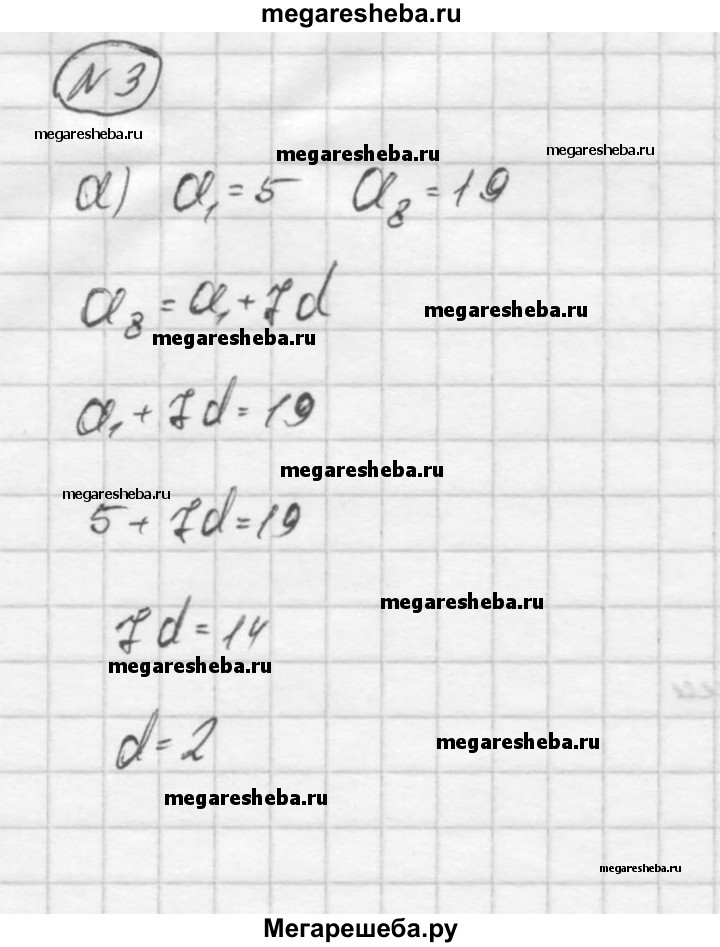 megaresheba.ru
N 3
megaresheba.ru
megaresheba.ru
megaresheba.ru
а) a₁ = 5 a₈ = 19
a₈ = a₁ + 7d
megaresheba.ru
megaresheba.ru
a₁ + 7d = 19
megaresheba.ru
megaresheba.ru
5 + 7d = 19
megaresheba.ru
7d = 14
megaresheba.ru
d = 2
megaresheba.ru
megaresheba.ru
megaresheba.ru
Мегарешеба.ру